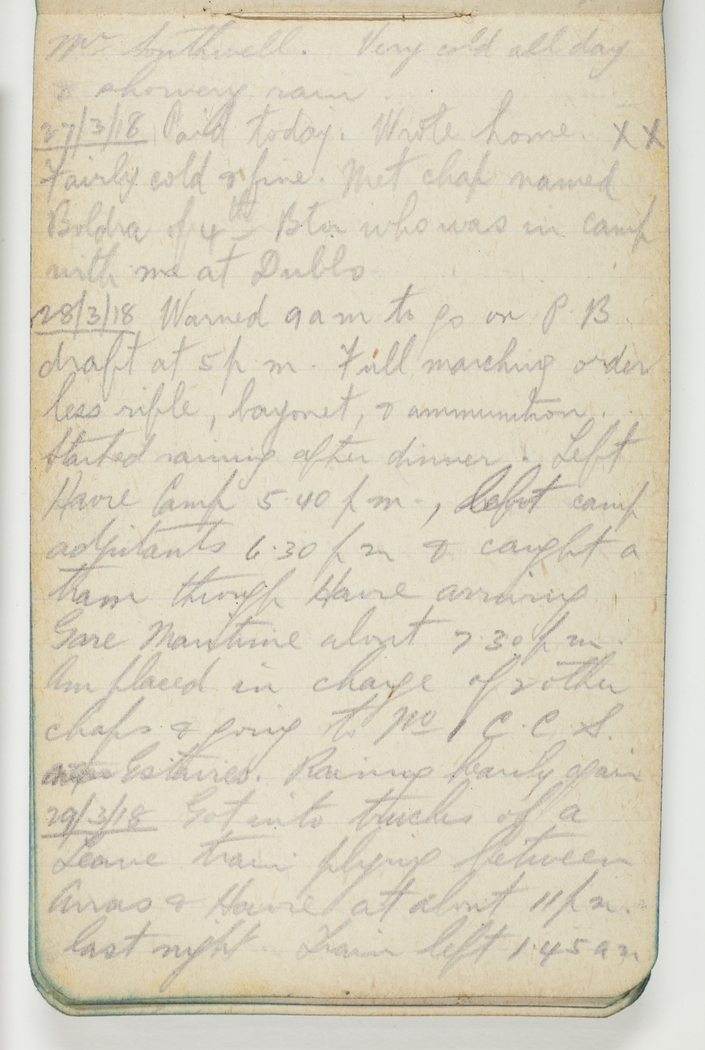 Mr Southwell. Very cold all day
& showery rain
27/3/18 Paid today. Wrote home. X X
Fairly cold & fine. Met chap named
Boldra of 4th Btn who was in camp
with me at Dubbo
28/3/18 Warned 9 a m to go on P. B.
draft at 5 p m. Full marching order
less rifle, bayonet, & ammunition.
Started raining after dinner. Left
Havre Camp 5.40 p m., left camp
adjutants 6.30 p m & caught a
tram through Havre arriving
Gare Maritime about 7.30 p m.
Am placed in charge of 2 other
chaps & going to No 1 C. C. S.
Estaires. Raining heavily again
29/3/18 Got into trucks of a
Leave train plying between
Arras & Havre at about 11 p m.
last night. Train left 1.45 a m